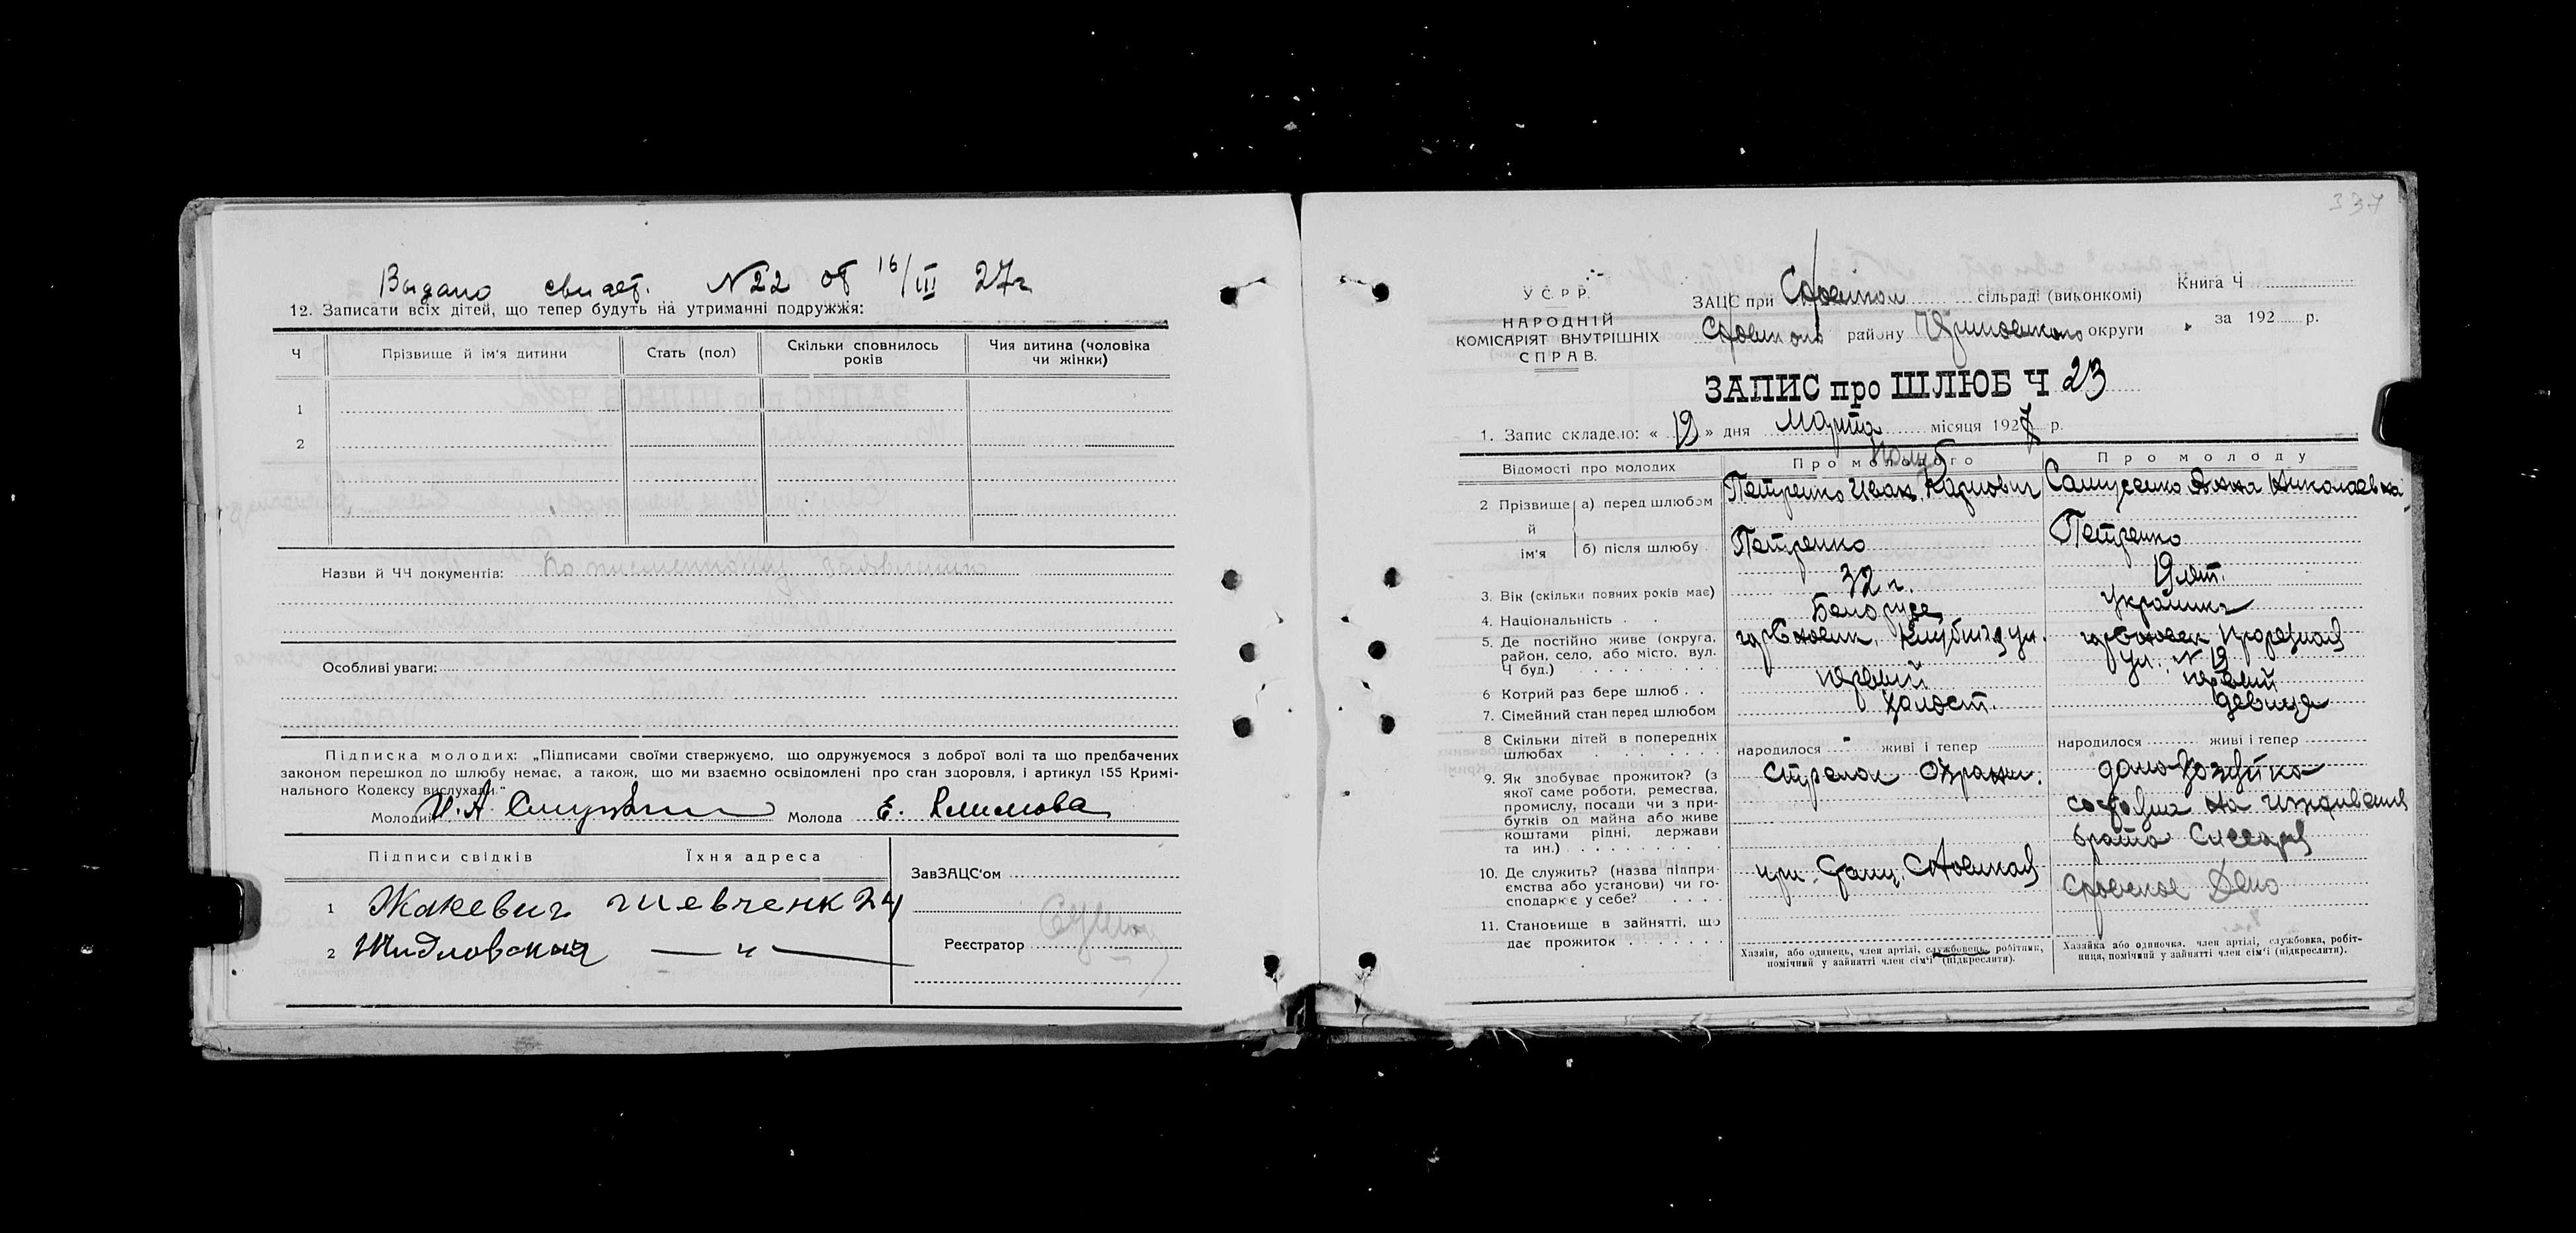 Выдано свидет. №22 от 16/III 27г
12. Записати всіх дітей, що тепер будуть на утриманні подружжя:
Ч Прізвище й ім'я дитини Стать (пол) Скільки сповнилось років Чия дитина (чоловіка чи жінки)
1
2
Назви й ЧЧ документів: По
Особливі уваги:
Підписка молодих: „Підписами своїми стверджуємо, що одружуємося з доброї волі та що предбачених
законом перешкод до шлюбу немає, а також, що ми взаємно освідомлені про стан здоровля, і артикул 155 Кримі-
нального Кодексу вислухали."
Молодий И. А. Молода Е. Климова
Підписи свідків Їхня адреса
ЗавЗАЦС'ом
1 Жакевич Шевченк 24
Реєстратор
2 Шидловская — " —
337
У С Р Р.
НАРОДНІЙ
КОМІСАРІЯТ ВНУТРІШНІХ
СПРАВ.
ЗАЦС при сільраді (виконкомі)
району округи
Книга Ч
за 192 р.
ЗАПИС про ШЛЮБ Ч 23
1. Запис складено: « 19 » дня Марта місяця 1927 р.
Відомості про молодих Про молодого Про молоду
2 Прізвище й ім'я а) перед шлюбом Петренко Иван Карпович Самусенко Анна Николаевна
б) після шлюбу Петренко Петренко
3. Вік (скільки повних років має) 32 г. 19 лет.
4. Національність Белорусс Украинка
5. Де постійно живе (округа, район, село, або місто, вул. Ч буд.) гор Сновск, Клубная ул. гор Сновск Прорезная ул. № 19
6 Котрий раз бере шлюб первый первый
7. Сімейний стан перед шлюбом холост. девица
8 Скільки дітей в попередніх шлюбах народилося - живі і тепер народилося живі і тепер
9. Як здобуває прожиток? (з якої саме роботи, ремества, промислу, посади чи з при-бутків од майна або живе коштами рідні, держави та ин.) стрелок Охраны. домохозяйка на иждивении брата Слесаря
10. Де служить? (назва підпри-ємства або установи) чи го-сподарює у себе? при Станц. Сновская Сновское Депо
11. Становище в зайнятті, що дає прожиток
Хазяїн, або одинець, член артілі, службовець, робітник, помічний у зайнятті член сім'ї (підкреслити).
Хазяйка або одиночка, член артілі, службовка, робіт-ниця, помічний у зайнятті член сім'ї (підкреслити).